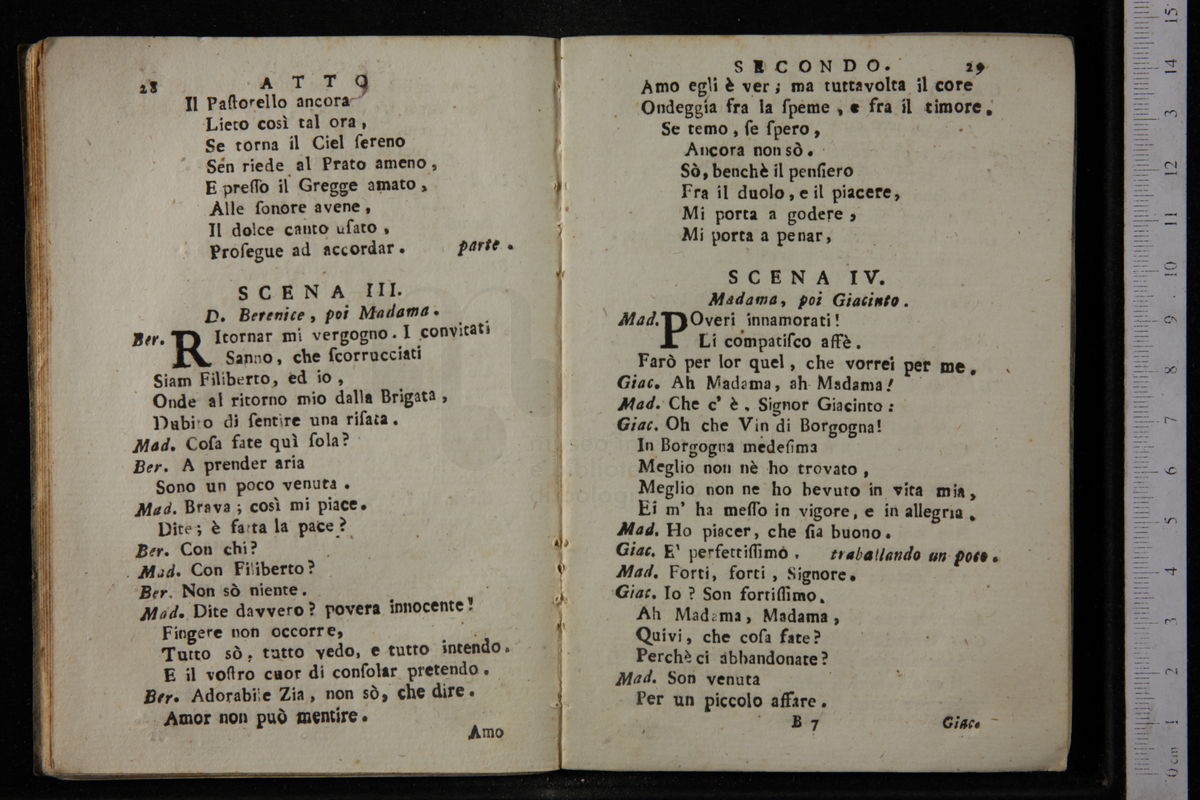 28 ATTO
Il Paſtorello ancora
Lieto così tal ora,
Se torna il Ciel ſereno
Sen riede al Prato ameno,
E preſſo il Gregge amato,
Alle ſonore avene,
Il dolce canto uſato,
Proſegue ad accordar. parte.
SCENA III.
D. Berenice, poi Madama.
Ber. RItornar mi vergogno. I convitati
Sanno, che ſcorrucciati
Siam Filiberto, ed io,
Onde al ritorno mio dalla Brigata,
Dubito di ſentire una riſata.
Mad. Coſa fate quì ſola?
Ber. A prender aria
Sono un poco venuta.
Mad. Brava; così mi piace.
Dite; è fatta la pace?
Ber. Con chi?
Mad. Con Filiberto?
Ber. Non sò niente.
Mad. Dite davvero? povera innocente!
Fingere non occorre,
Tutto sò, tutto vedo, e tutto intendo.
E il voſtro cuor di conſolar pretendo.
Ber. Adorabile Zia, non sò, che dire.
Amor non può mentire.
Amo
SECONDO. 29
Amo egli è ver; ma tuttavolta il core
Ondeggia fra la ſpeme, e fra il timore.
Se temo, ſe ſpero,
Ancora non sò.
Sò, benchè il penſiero
Fra il duolo, e il piacere,
Mi porta a godere,
Mi porta a penar,
SCENA IV.
Madama, poi Giacinto.
Mad. POveri innamorati!
Li compatiſco affè.
Farò per lor quel, che vorrei per me.
Giac. Ah Madama, ah Madama!
Mad. Che c' è, Signor Giacinto:
Giac. Oh che Vin di Borgogna!
In Borgogna medeſima
Meglio non nè ho trovato,
Meglio non ne ho bevuto in vita mia,
Ei m' ha meſſo in vigore, e in allegria.
Mad. Ho piacer, che ſia buono.
Giac. E' perfettiſſimo. traballando un poco.
Mad. Forti, forti, Signore.
Giac. Io? Son fortiſſimo.
Ah Madama, Madama,
Quivi, che coſa fate?
Perchè ci abbandonate?
Mad. Son venuta
Per un piccolo affare.
B 7 Giac.